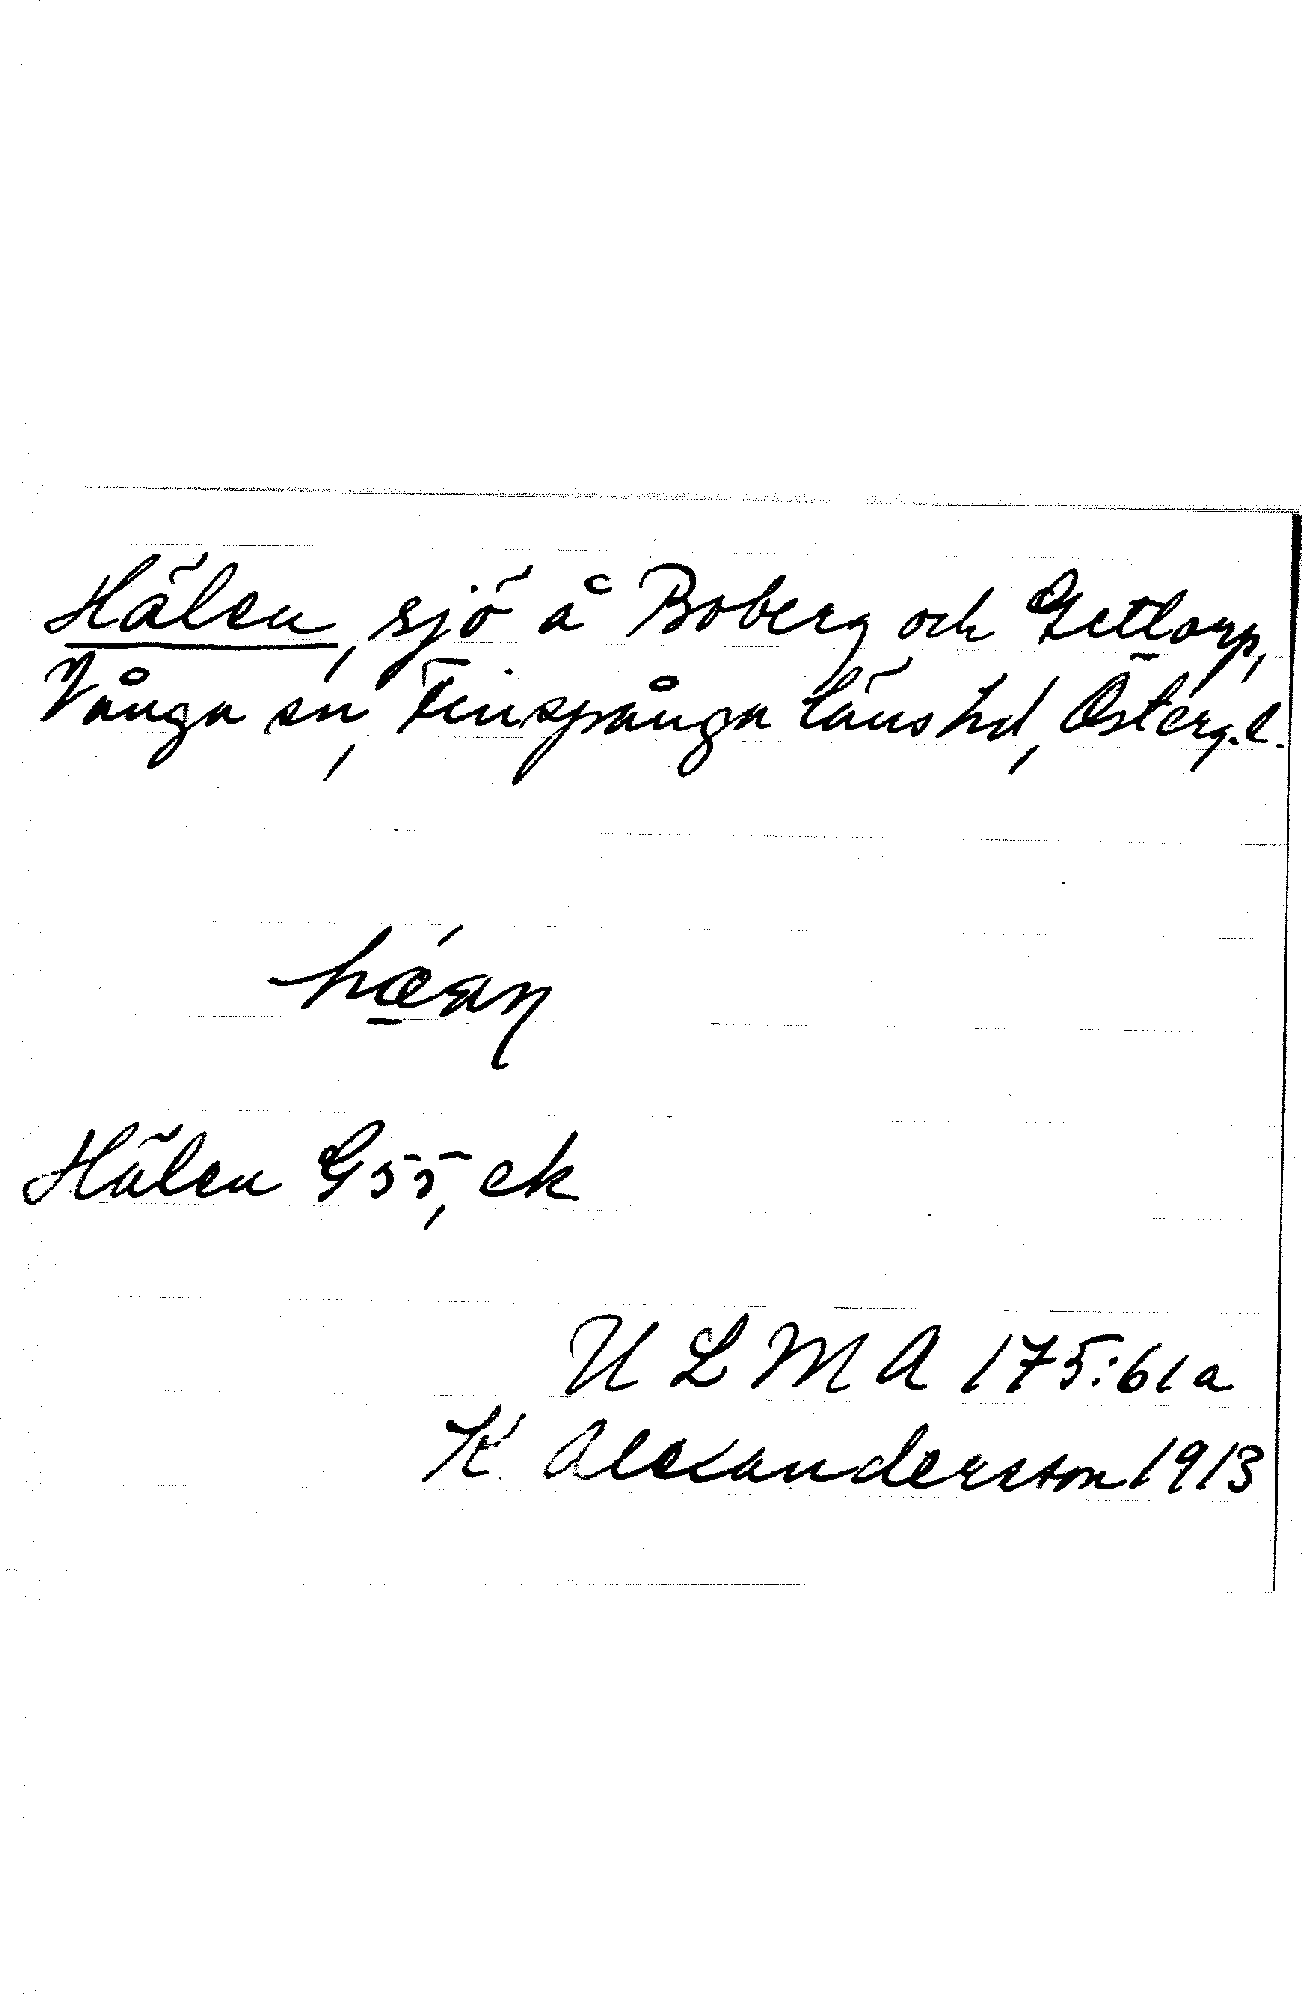 Hälen, sjö å Boberg och Getlorp,
Vånga sn, Finspånga läns hd, Österg.l.
Hälen G55, ek
ULMA 175:61a
K. Alexandersson 1913